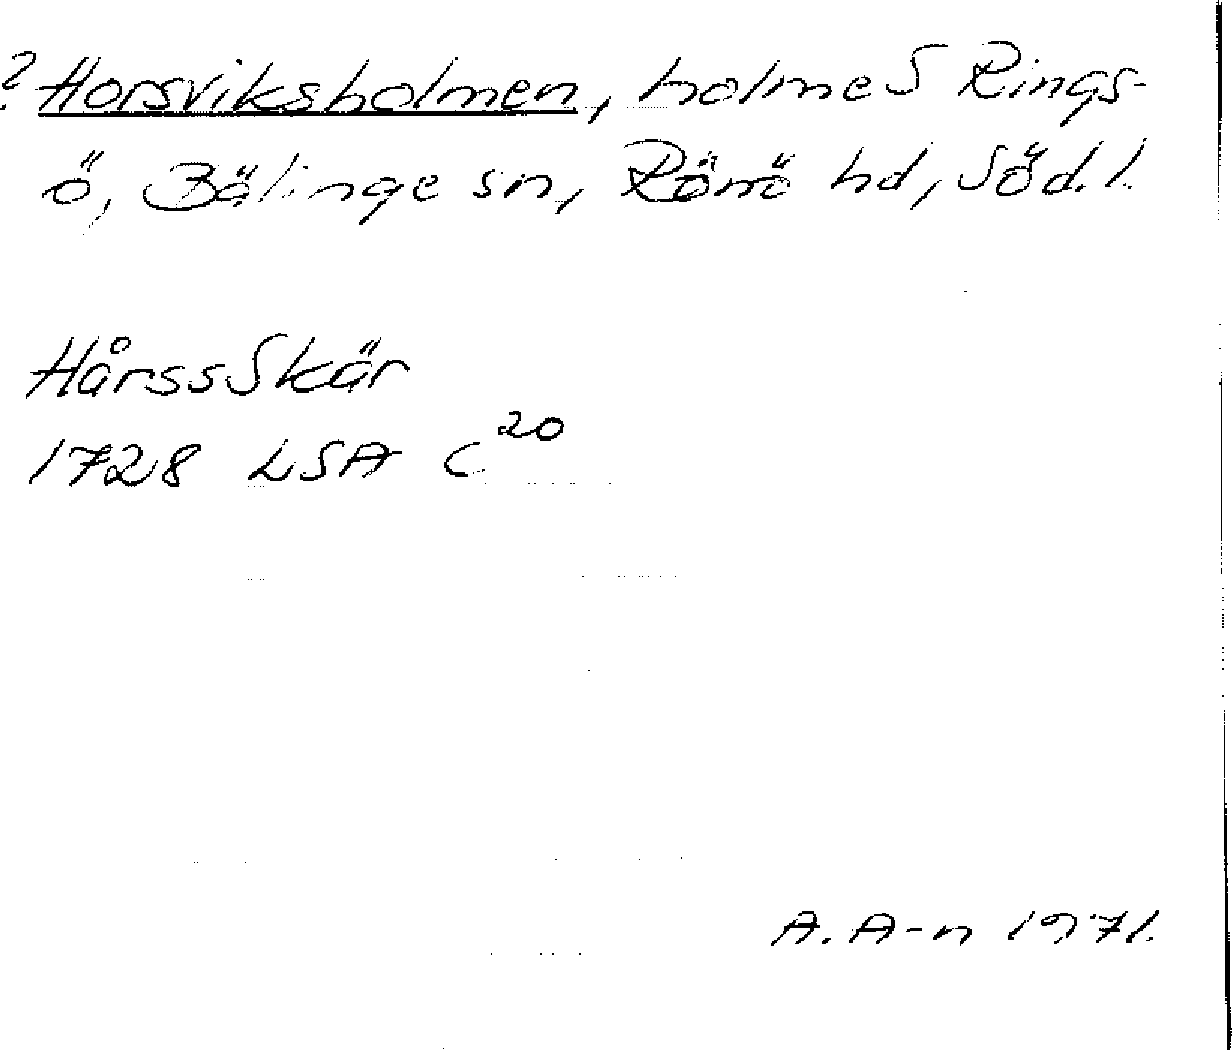 ? Horsviksholmen, holme S Rings-
ö, Bälinge sn, Rönö hd, Söd.l.
HårssSkär
1728 LSA C20
A. A-n 1971.